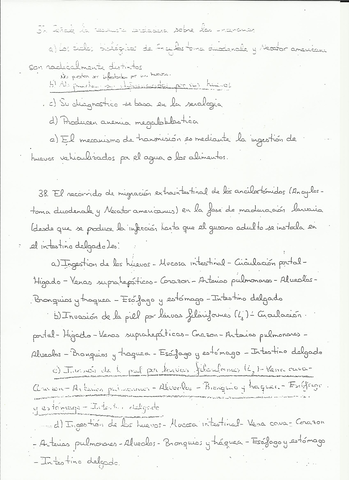 37. Señale la respuesta sobre los
a) Los ciclos biológicos de Ancylostoma duodenale y Necator americanus
son radicalmente distintos
No pueden ser infectados por sus huevos
c) Su diagnóstico se basa en la serología
d) Producen anemia megaloblástica
e) El mecanismo de transmisión es mediante la ingestión de
huevos vehiculizados por el agua o los alimentos.
38. El recorrido de migración extraintestinal de los ancilostómidos (Ancylos-
toma duodenale y Necator americanus) en la fase de maduración larvaria
(desde que se produce la infección hasta que el gusano adulto se instala en
el intestino delgado) es:
a) Ingestión de los huevos - Mucosa intestinal - Circulación portal -
Hígado - Venas suprahepáticas - Corazon - Arterias pulmonares - Alveolos -
Bronquios y traquea - Esófago y estómago - Intestino delgado
b) Invasión de la piel por larvas filariformes (L3) - Circulación
portal - Hígado - Venas suprahepáticas - Corazon - Arterias pulmonares -
Alveolos - Bronquios y tráquea - Esófago y estómago - Intestino delgado
c) Invasión de la piel por larvas filariformes (L3) - Vena cava -
Corazon - Arterias pulmonares - Alveolos - Bronquios y tráquea - Esófago
y estómago - Intestino delgado
d) Ingestión de los huevos - Mucosa intestinal - Vena cava - Corazon
- Arterias pulmonares - Alveolos - Bronquios y tráquea - Esófago y estómago
- Intestino delgado.